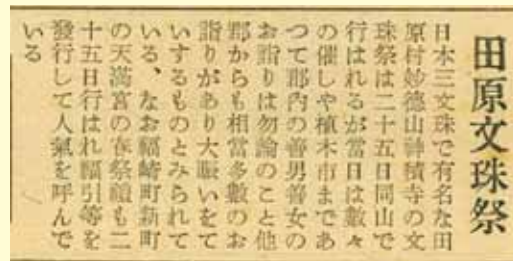 田原文珠祭
日本三文珠で有名な田
原村妙德山神積寺の文
珠祭は二十五日同山で
行はれるが當日は數々
の催しや植木市まであ
つて郡內の善男善女の
お詣りは勿論のこと他
郡からも相當多數のお
詣りがあり大賑いをて
いするものとみられて
いる、なお福崎町新町
の天滿宮の春祭禮も二
十五日行はれ福引等を
發行して人氣を呼んで
いる